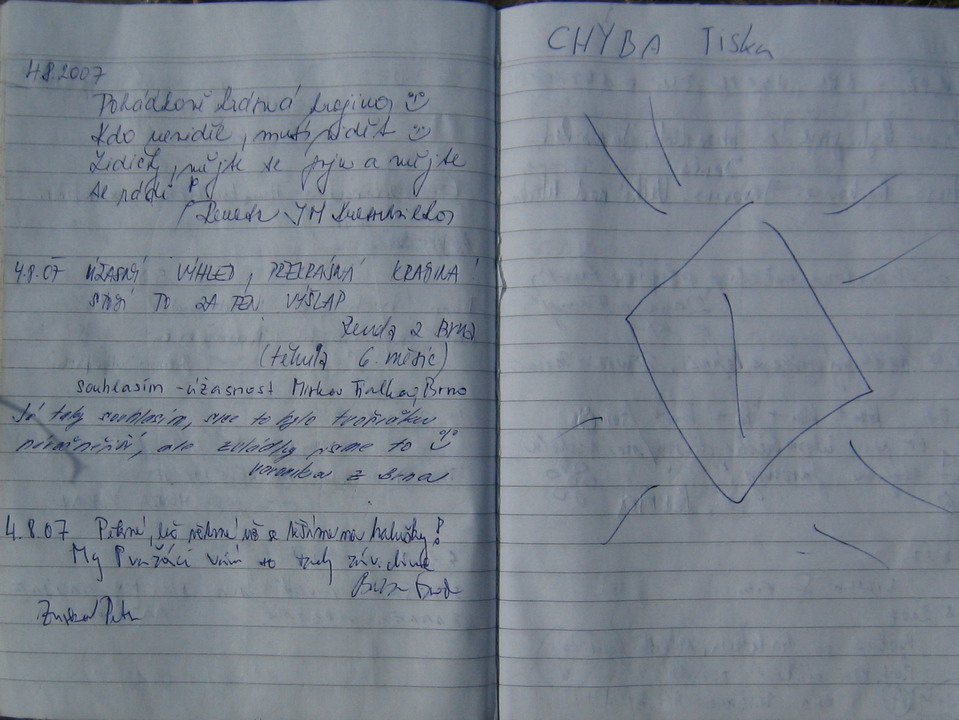 4.8.2007
Pohádkově krásná krajina
Kdo neviděl, musí vidět
Lidičky, mějte se fajn a mějte
se rádi
Lenka JM
4.8.07 ÚŽASNÝ VÝHLED, PŘEKRÁSNÁ KRAJINA
STOJÍ TO ZA TEN VÝŠLAP
Lenda z Brna
(těhula 6. měsíc)
souhlasím - úžasnost Mirka Brno
Já taky souhlasím, sice to bylo trošičku
náročnější, ale zvládly jsme to
Veronika z Brna
4.8.07 Pěkné, leč pěkné už se těšíme na halušky!
My Pražáci vám to tady závidíme
Zuzka Petr
CHYBA Tisku